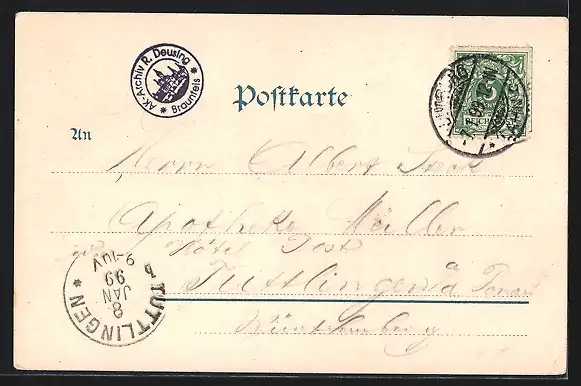 AK-Archiv R. Deusing
* Braunfels *
Postkarte
An
Herrn Albert
Apotheke Müller
Hôtel Post
Tuttlingen a Donau
Württemberg
TUTTLINGEN *
8
JAN
99
9-10V
5
REICHSPOST